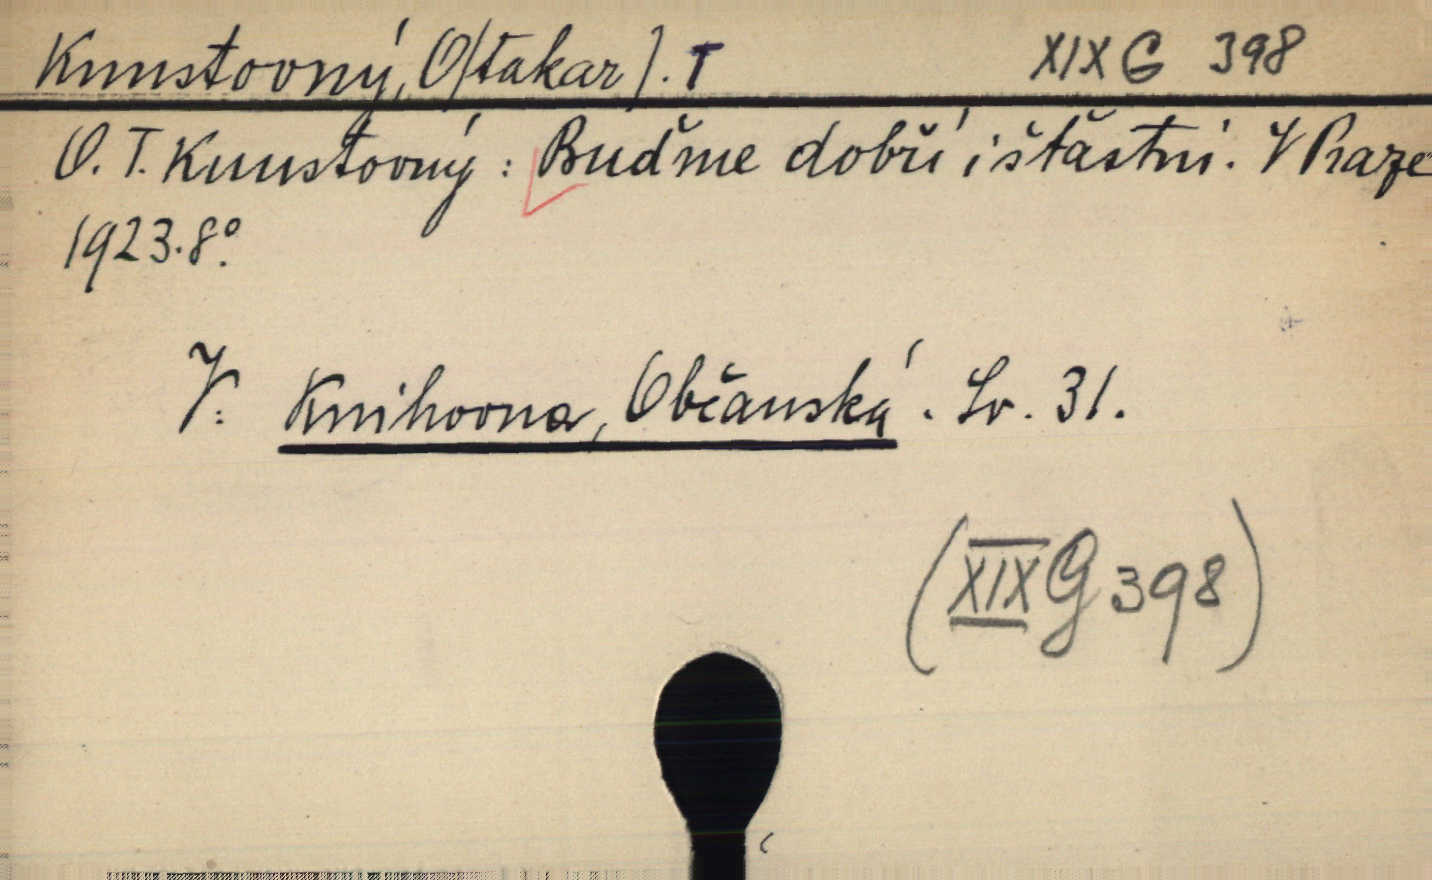 Kunstovný, O[takar]. T XIX G 398
O. T. Kunstovný: Buďme dobří i šťastni. V Praze
1923. 8°.
V: Knihovna, Občanská. Sv. 31.
(XIX G 398)